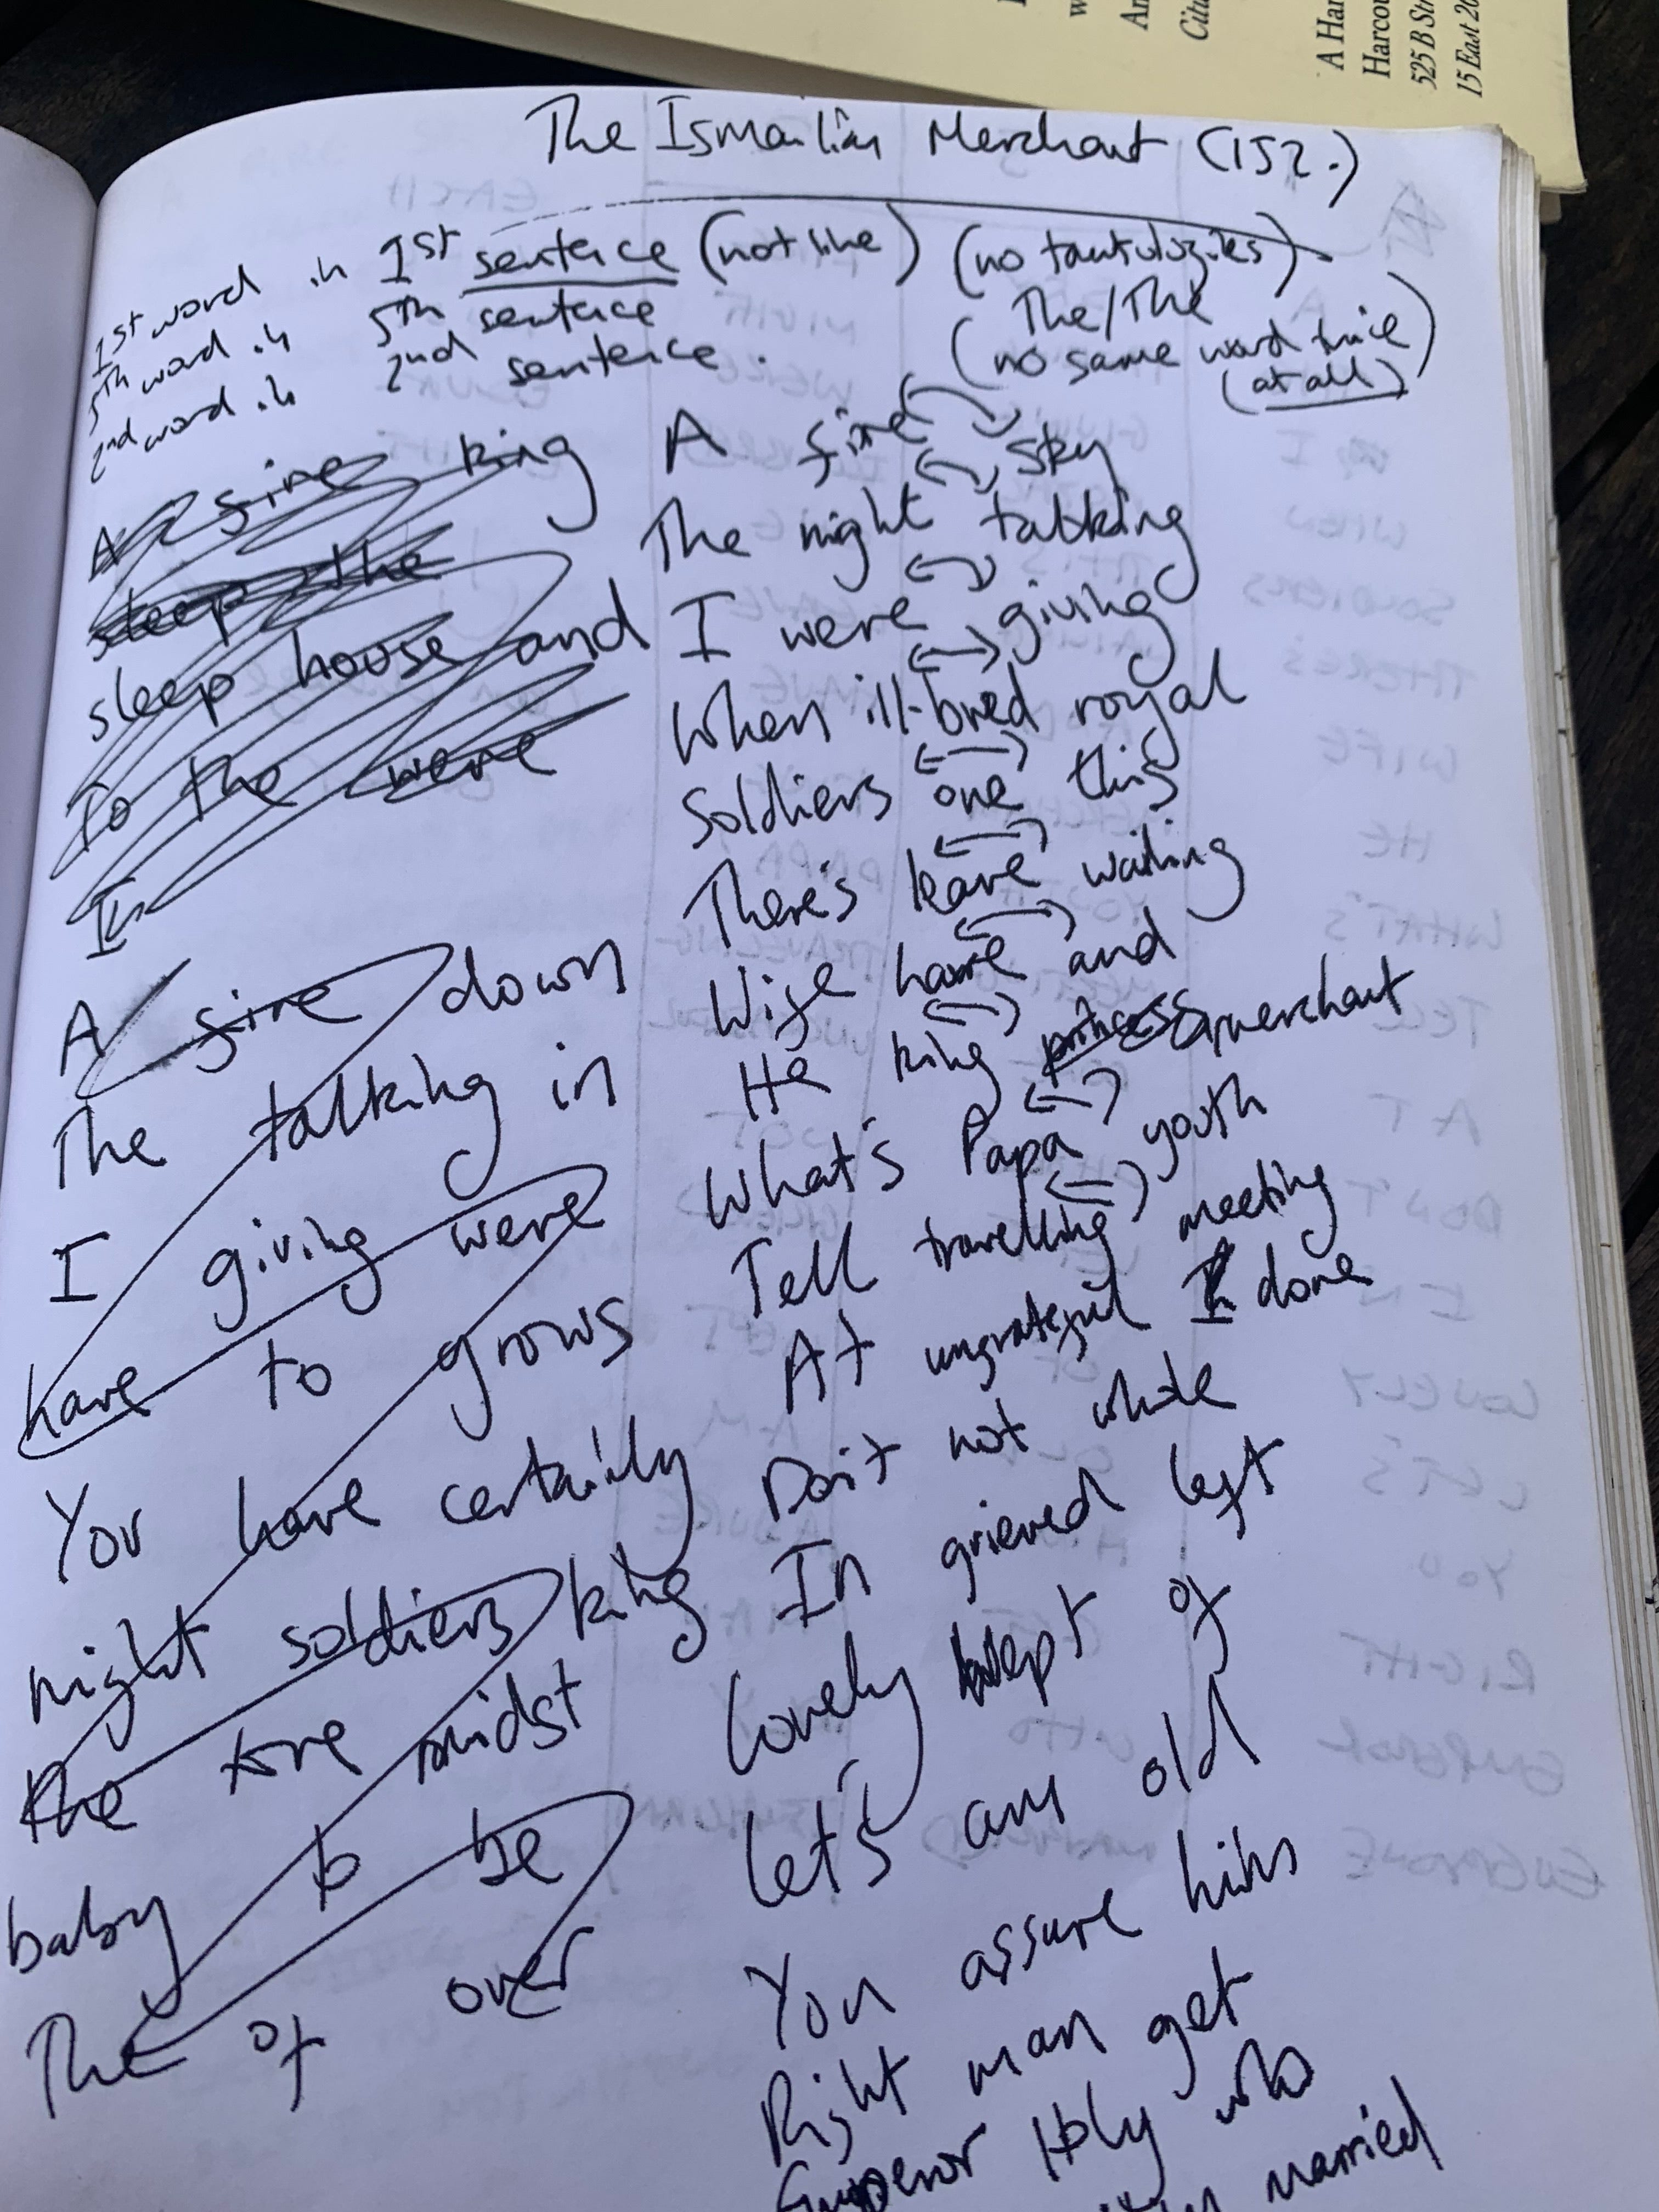 A Har
Harcou
525 B Str
15 East 26
The Ismailian Merchant (152.)
1st word in 1st sentence (not line) (no tautologies)
5th word in 5th sentence The/The
2nd word in 2nd sentence. (no same word twice
(at all))
A fire king
sleep the
sleep house and
To the were
In
A fire down
The talking in
I giving were
have to grows
You have certainly
night soldiers king
the are midst
baby to be
The of over
A fire sky
The night talking
I were giving
When ill-bred royal
Soldiers one this
There's leave waiting
Wife have and
He king princess merchant
What's Papa youth
Tell travelling meeting
At ungrateful I done
Don't not while
In grieved left
Lovely kept of
Let's am old
You assure him
Right man get
Emperor Holy who
married